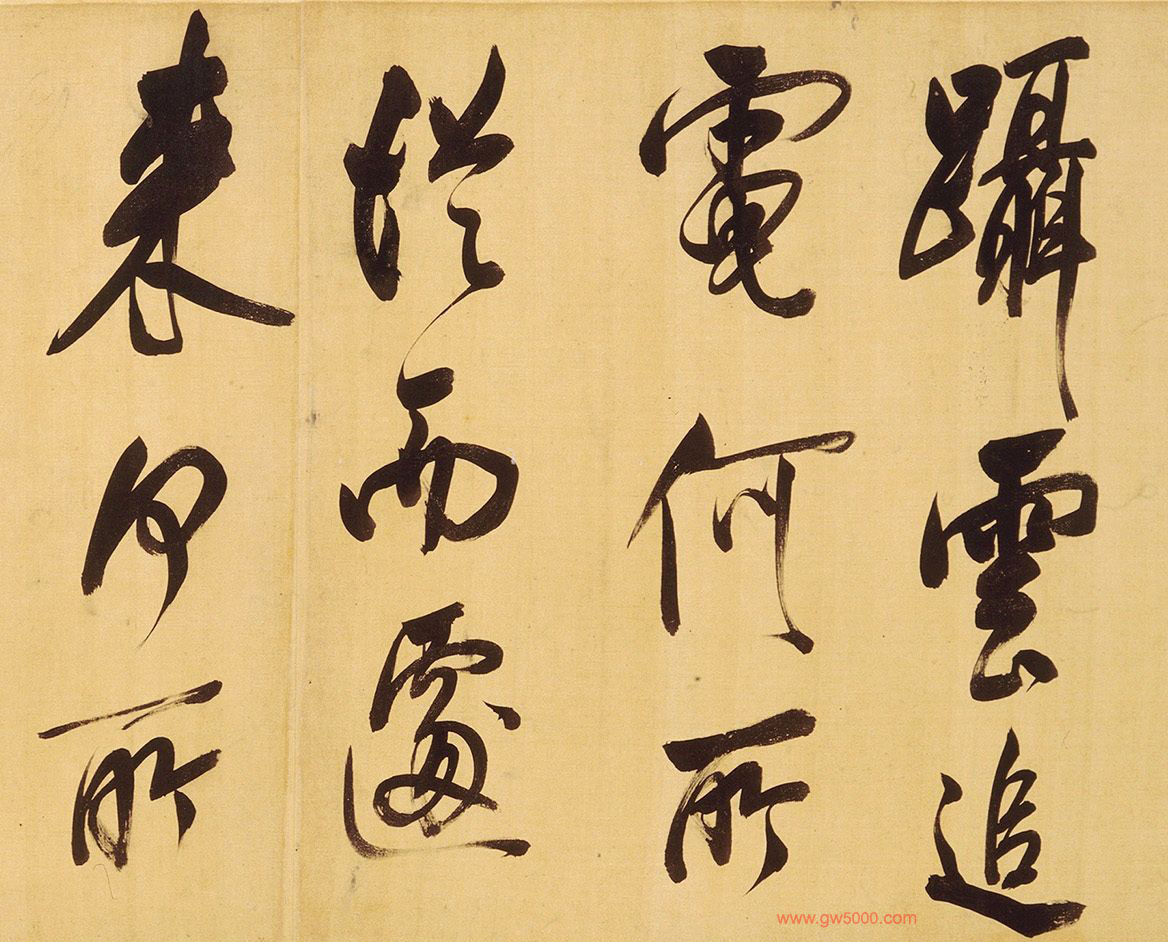 躡雲追
電何所
從而遽
来何所
www.gw5000.com